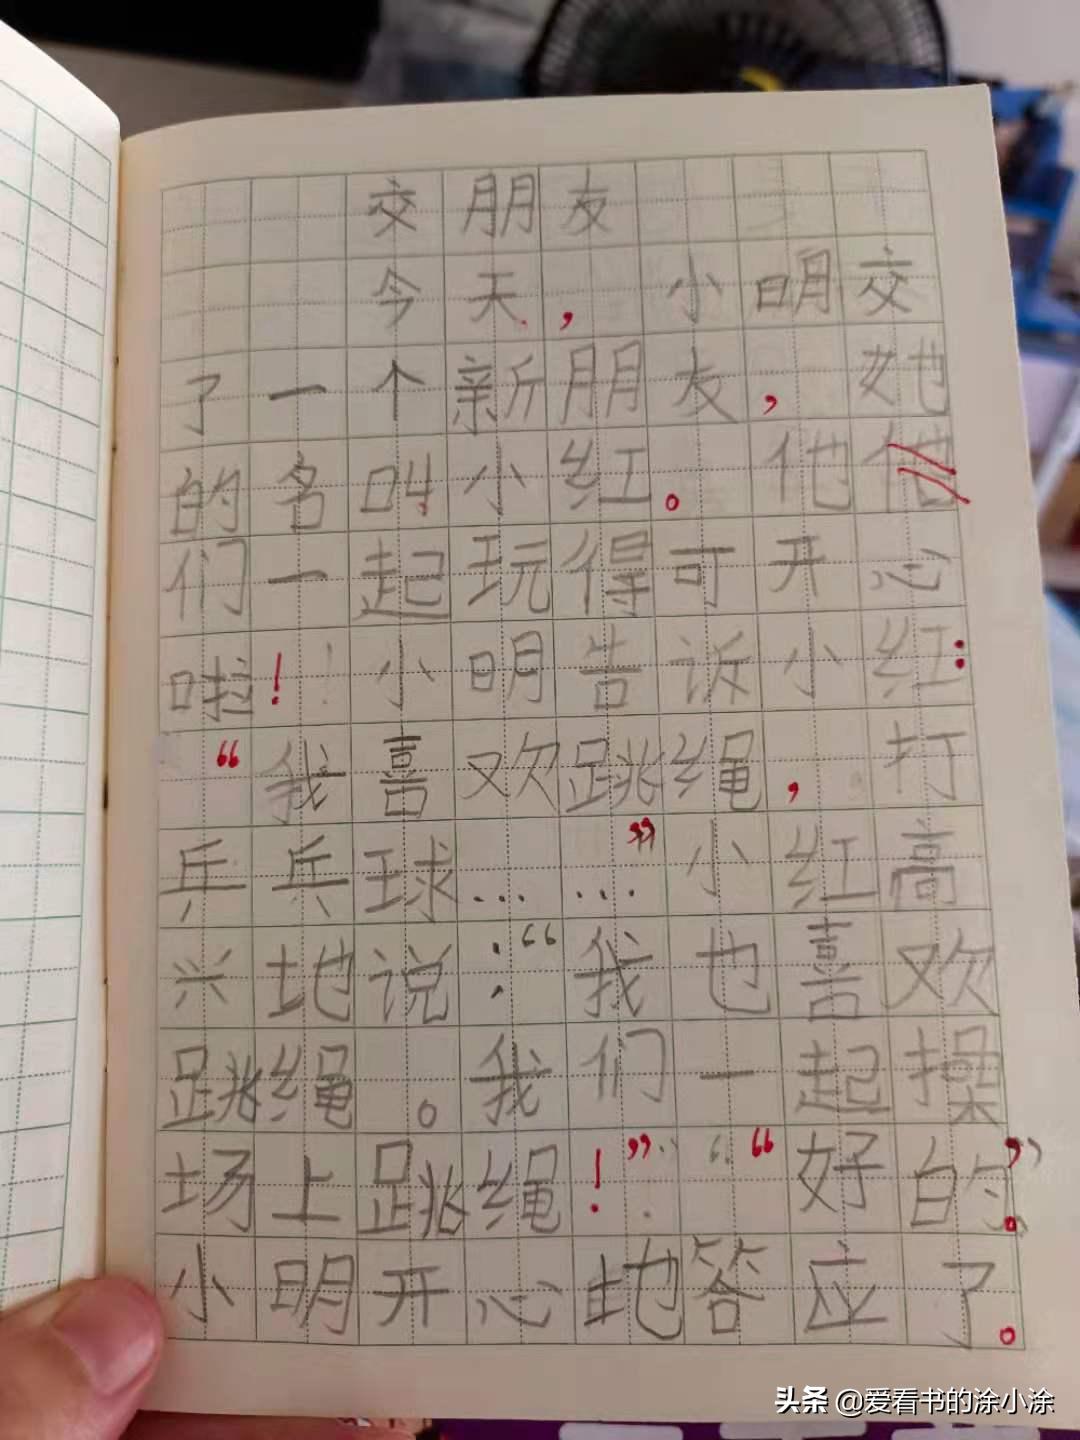 交朋友
今天，小明交
了一个新朋友，她
的名叫小红。他他
们一起玩得可开心
啦！小明告诉小红：
“我喜欢跳绳，打
乒乓球……”小红高
兴地说：“我也喜欢
跳绳。我们一起操
场上跳绳！”“好的。”
小明开心地答应了。
头条 @爱看书的涂小涂